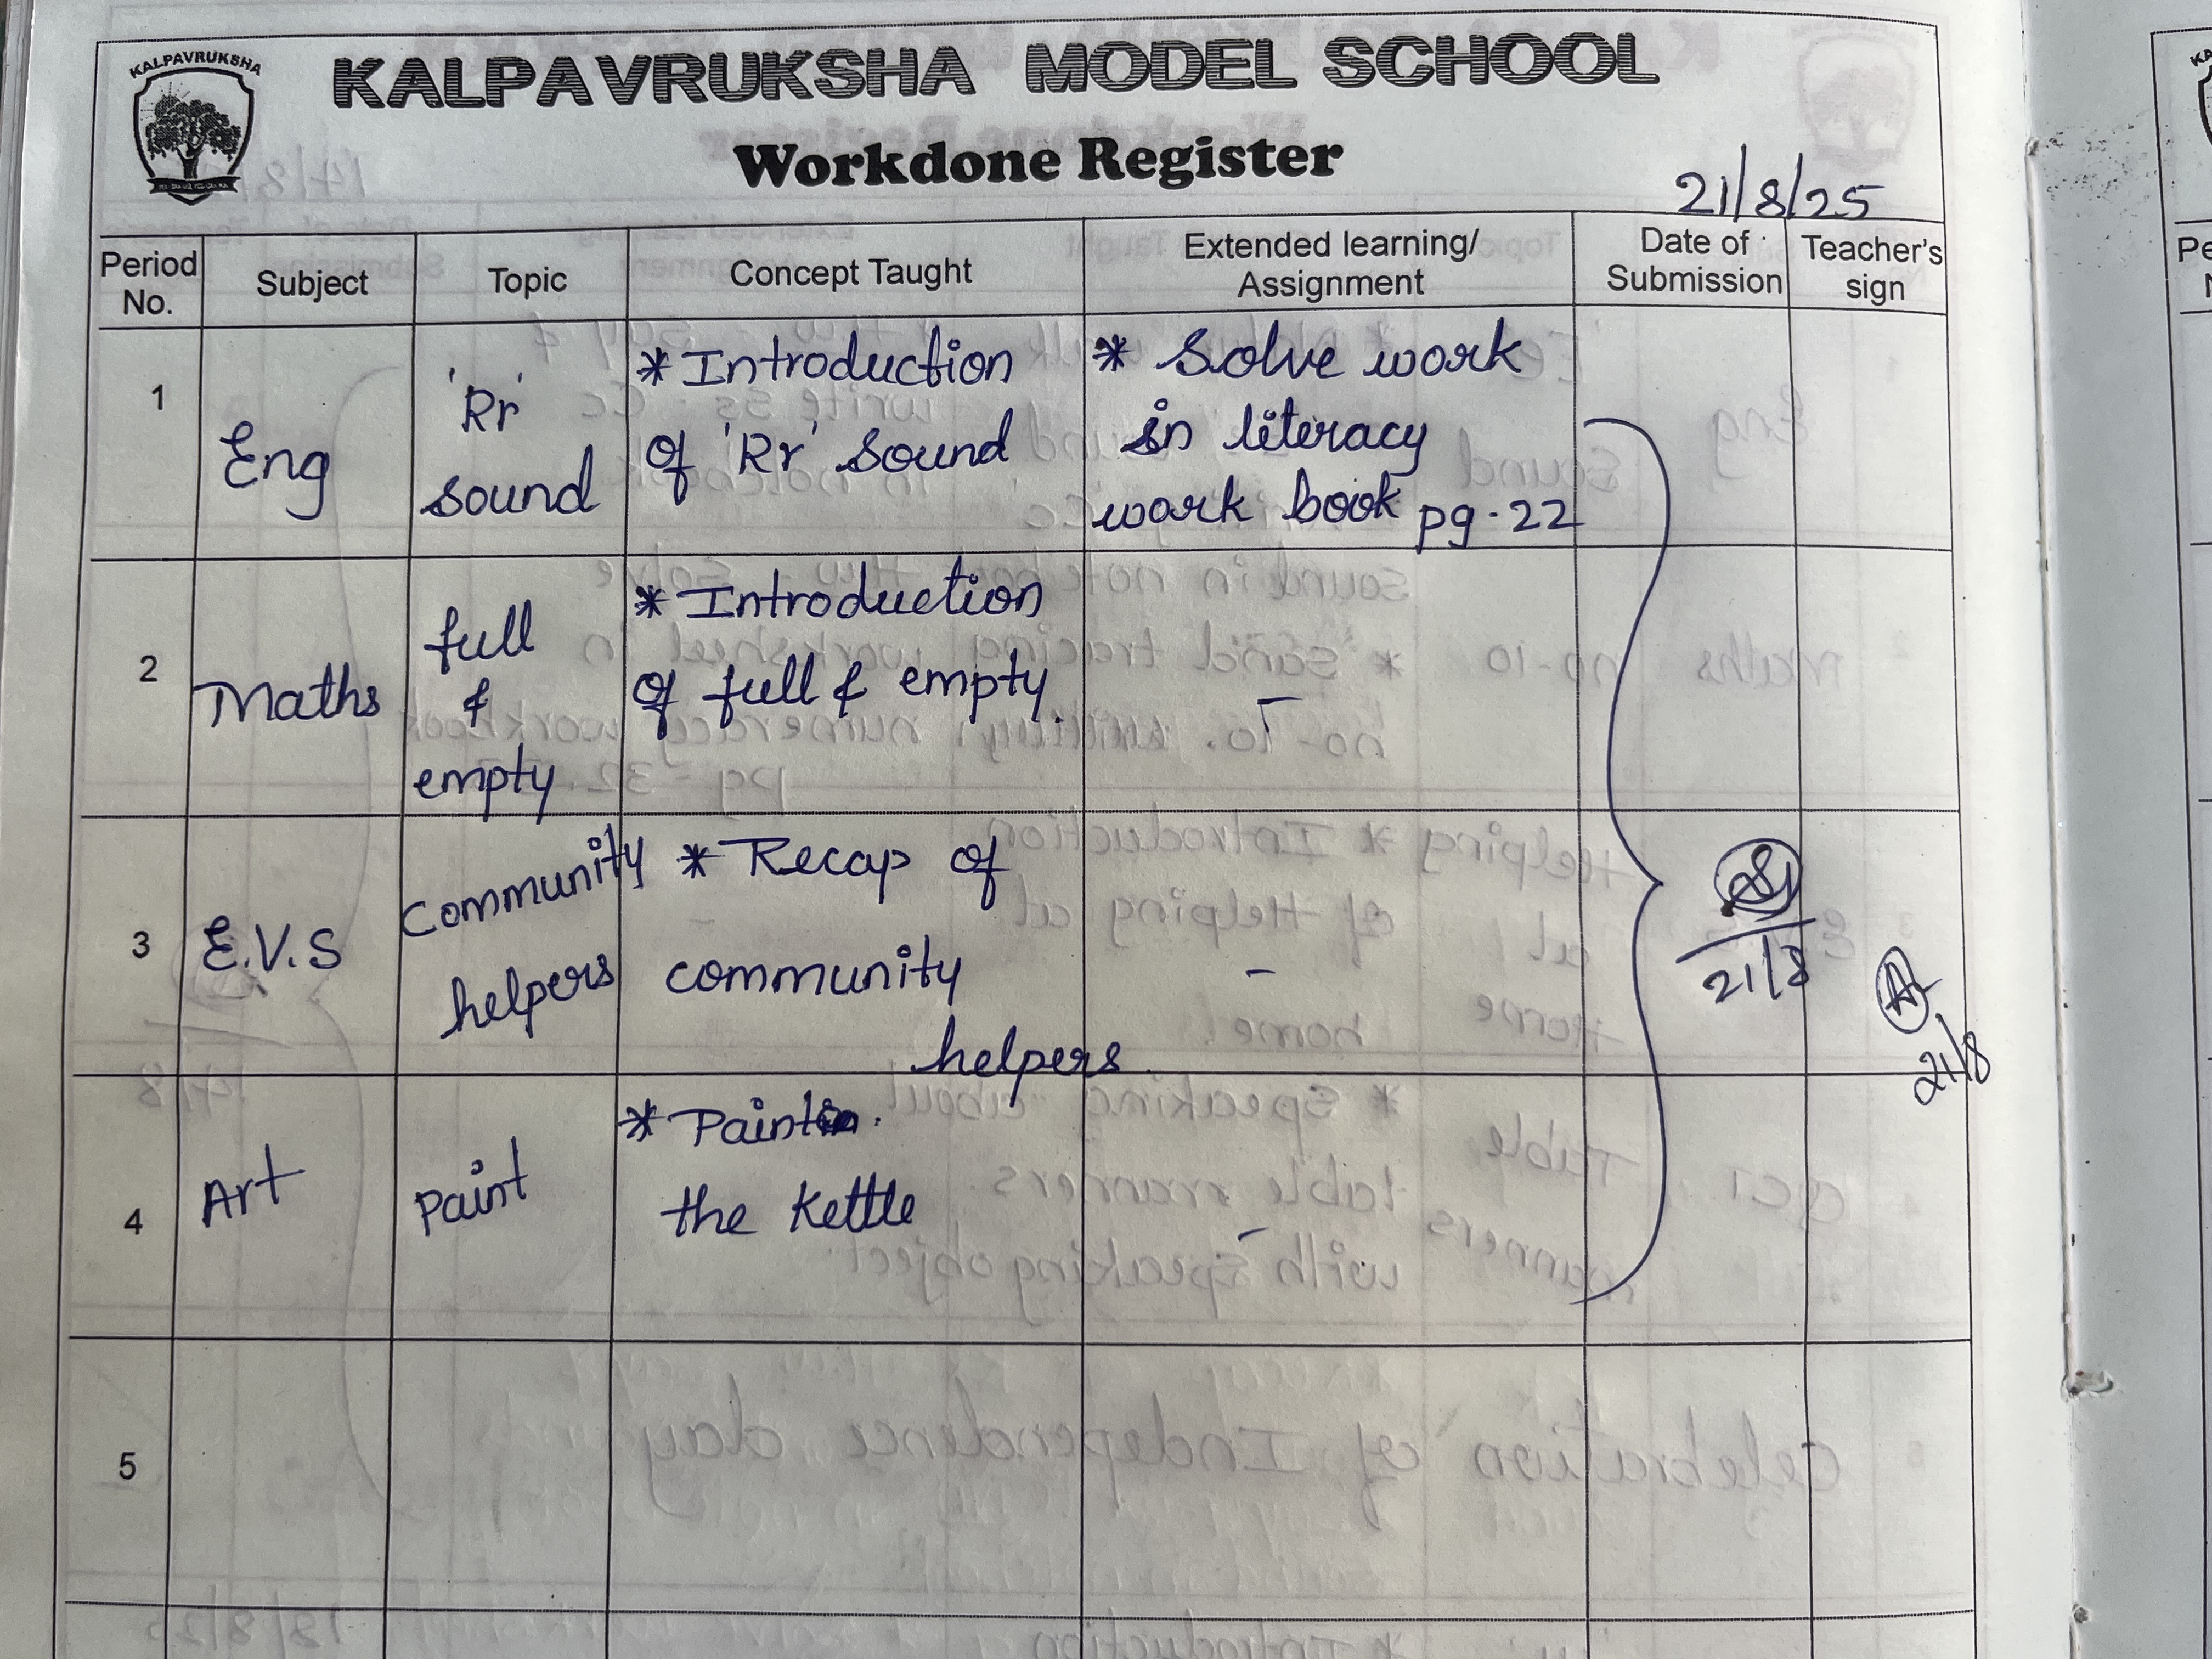 KALPAVRUKSHA
KALPAVRUKSHA MODEL SCHOOL
Workdone Register
21/8/25
Period No. Subject Topic Concept Taught Extended learning/ Assignment Date of Submission Teacher's sign
1
Eng
'Rr'
sound
* Introduction
of 'Rr' sound
* Solve work
in literacy
work book pg-22
2
Maths
full
&
empty
* Introduction
of full & empty.
-
3
E.V.S
Community
helpers
* Recap of
community
helpers
-
4
Art
Paint
* Paint
the Kettle
-
21/8
21/8
5